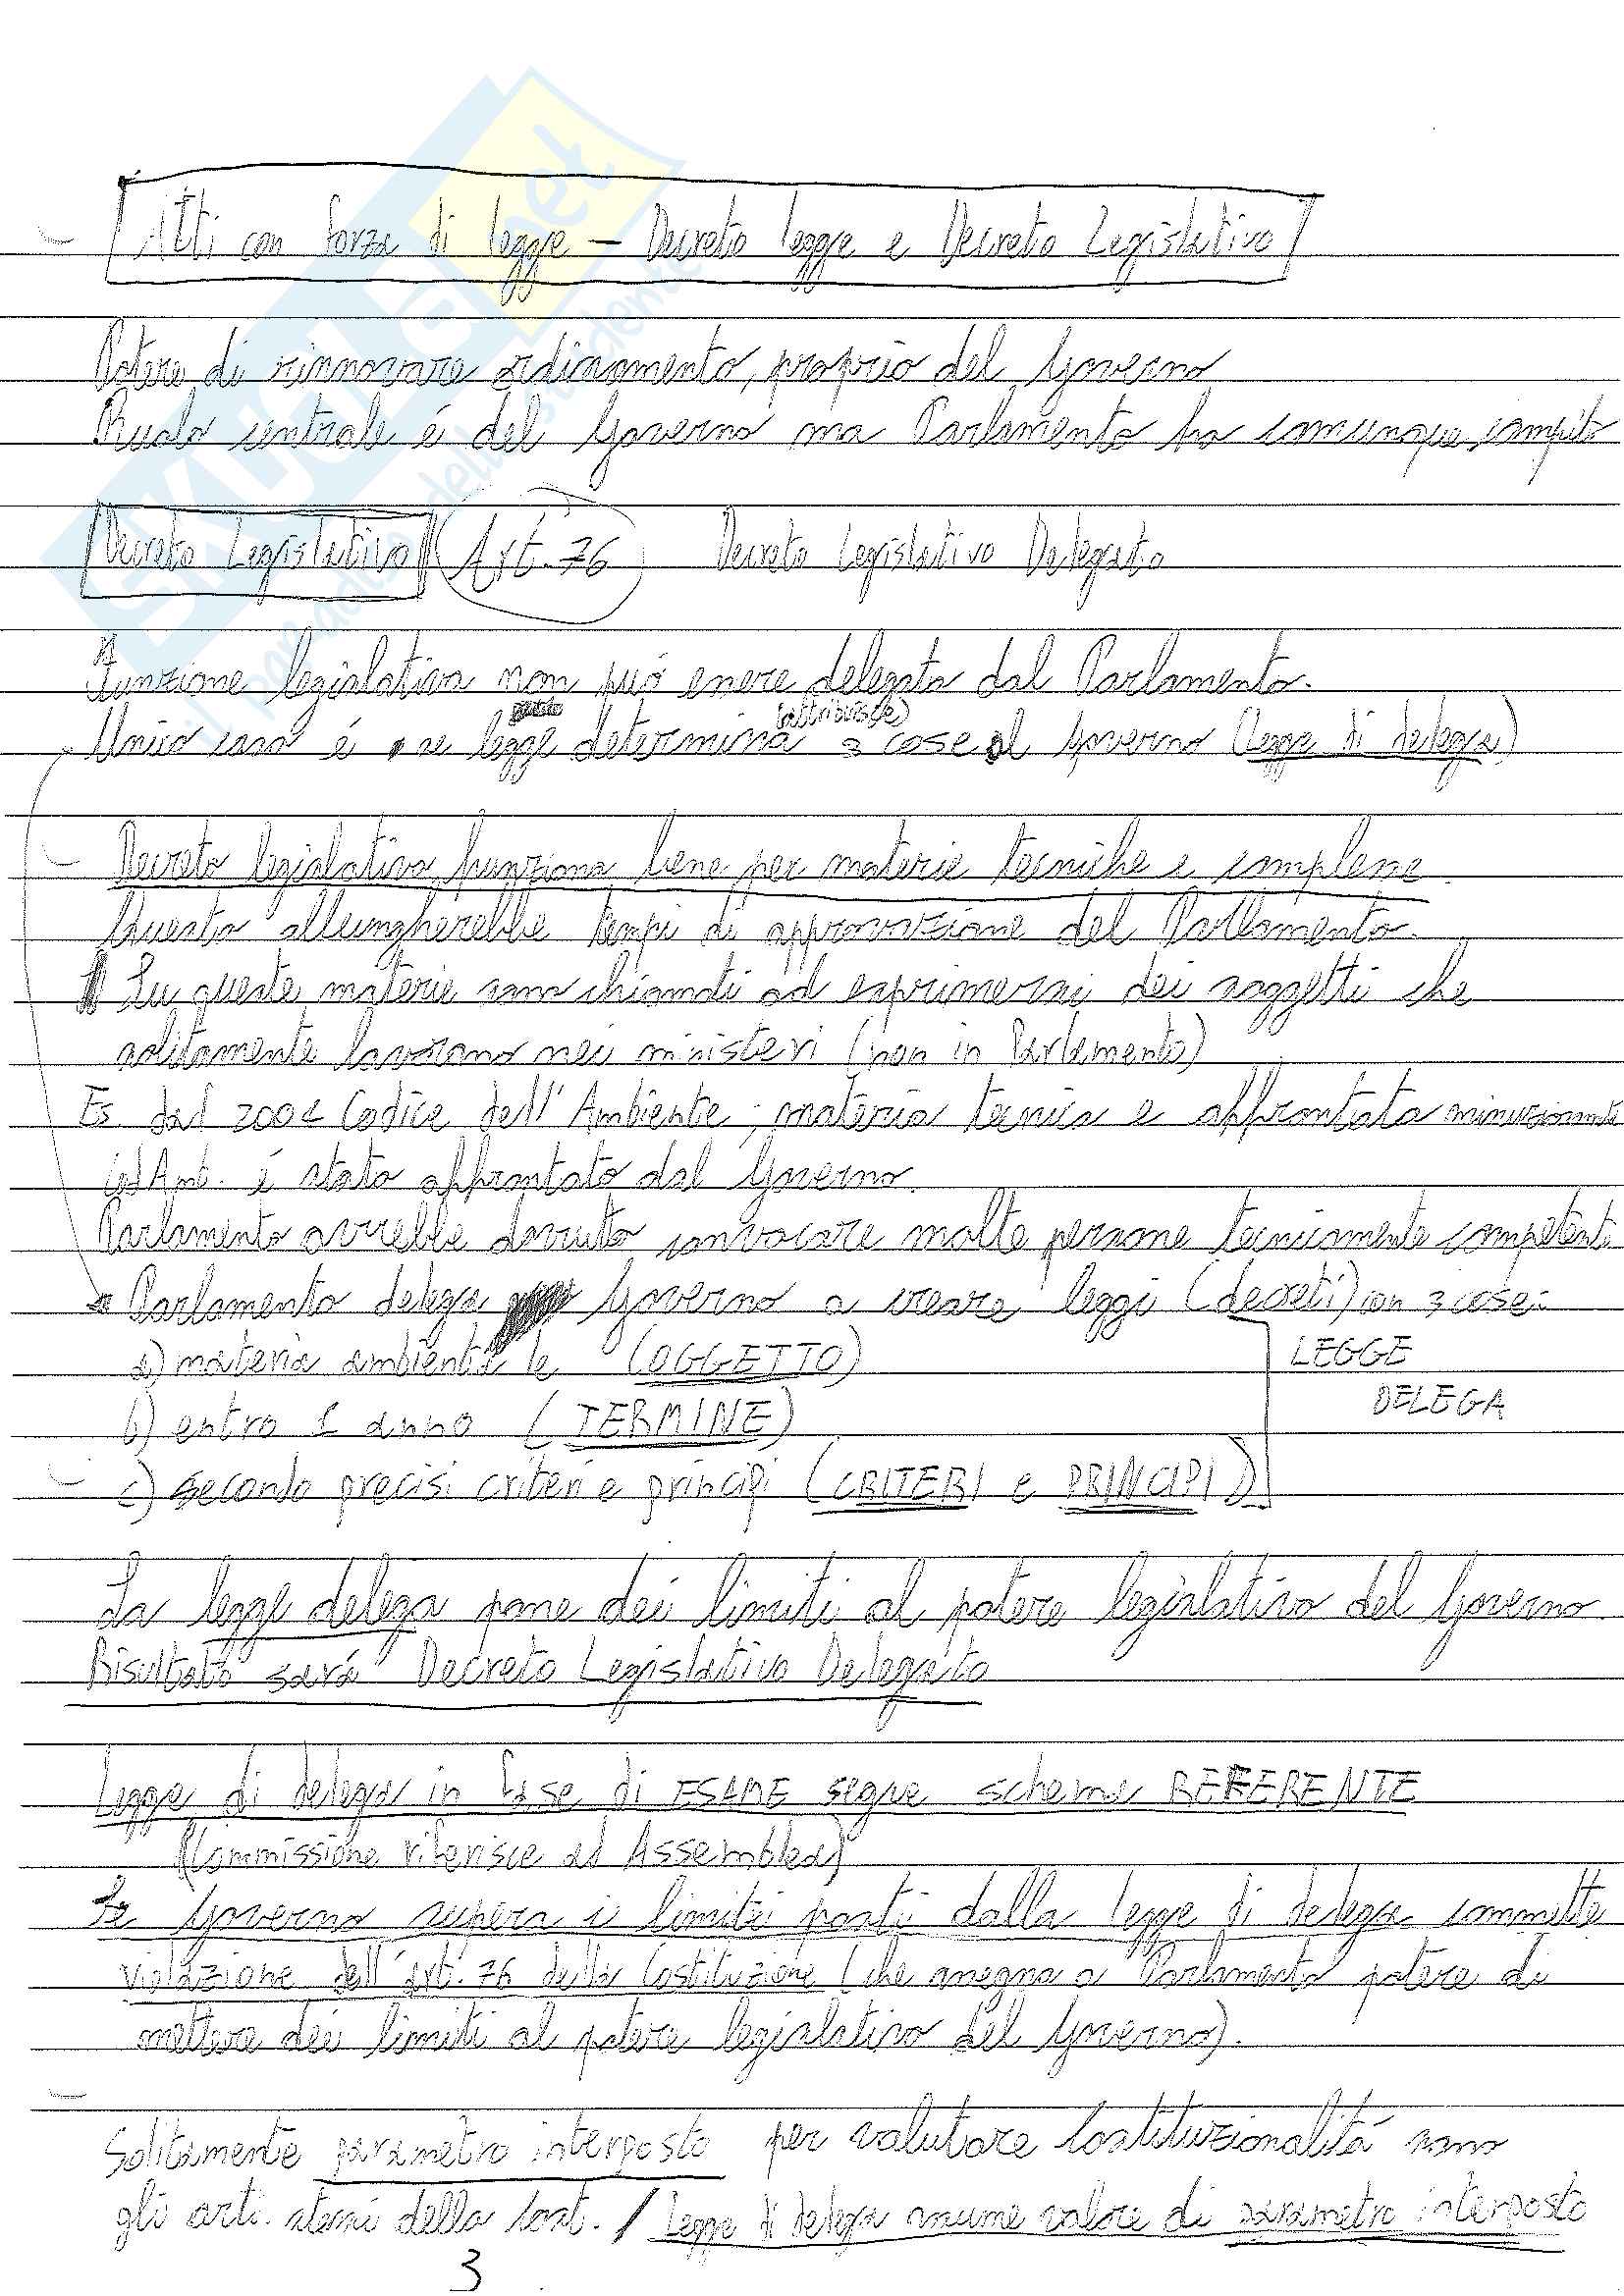 Atti con forza di legge - Decreto legge e Decreto Legislativo
Potere di rinnovare ordinamento, proprio del Governo
Ruolo centrale é del Governo ma Parlamento ha comunque compito
Decreto Legislativo Art. 76 Decreto Legislativo Delegato
Funzione legislativa non può essere delegata dal Parlamento.
(attribuisce)
Unico caso é se legge determina 3 cose al Governo (legge di delega)
- Decreto legislativo funziona bene per materie tecniche e complesse.
Questo allungherebbe tempi di approvazione del Parlamento.
Su queste materie sono chiamati ad esprimersi dei soggetti che
solitamente lavorano nei ministeri (non in Parlamento)
Es. dal Codice dell'Ambiente; materia tecnica e affrontata
Amb. é stato affrontato dal Governo.
Parlamento avrebbe dovuto convocare molte persone tecnicamente competenti
Parlamento delega Governo a creare leggi (decreti) con 3 cose:
a) materia ambientale (OGGETTO) LEGGE
b) entro 1 anno (TERMINE) DELEGA
c) secondo precisi criteri e principi (CRITERI e PRINCIPI)
La legge delega pone dei limiti al potere legislativo del Governo.
Risultato sará Decreto Legislativo Delegato
Legge di delega in fase di ESAME segue schema REFERENTE
(Commissione riferisce ad Assemblea)
Se Governo supera i limiti posti dalla legge di delega commette
violazione dell'art. 76 della Costituzione (che assegna a Parlamento potere di
mettere dei limiti al potere legislativo del Governo).
Solitamente parametro interposto per valutare Costituzionalitá sono
gli arti. stessi della Cost. / Legge di delega assume valore di parametro interposto
3
SKUOLA.net